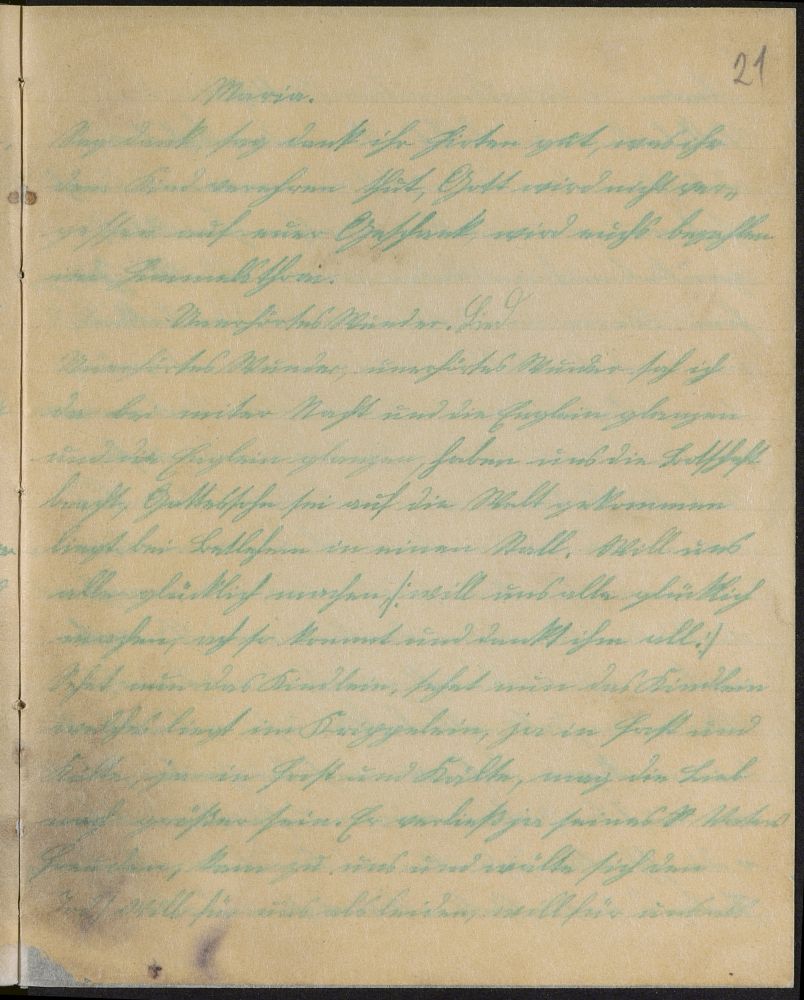 21
Maria.
Sag dank, sag dank ihr Hirten gut, was ihr
dem Kind verehren thut, Gott wird nicht ver„
gessen auf euer Geschenk, wird euchs bezahlen
im Himmelsthron.
Unerhörtes Wunder. Lied
Unerhörtes Wunder, unerhörtes Wunder sah ich
da bei miter Nacht und die Englein glanzen
und die Englein glanzen, haben uns die Botschaft
bracht, Gottessohn sei auf die Welt gekommen
liegt bei Betlehem in einen Stall. Will uns
alle glücklich machen /: will uns alle glücklich
machen, ach so kommt und dankt ihm all :/
Sehet nun das Kindlein, sehet nun das Kindlein
welches liegt im Krippelein, ja in Frost und
Kälte, ja in Frost und Kälte, mag die Lieb
noch größer sein. Er verließ ja seines Vaters
Freuden, kam zu uns und wälte sich den
Tod. Will für uns als leiden, will für uns als